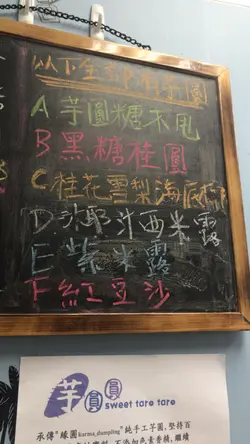 以下全部有芋圓
A 芋圓糖不甩
B 黑糖桂圓
C 桂花雪梨海底椰
D 沐耶汁西米露
E 紫米露
F 紅豆沙
芋圓圓
sweet taro taro
承傳"緣圓karma_dumpling"純手工芋圓,堅持百